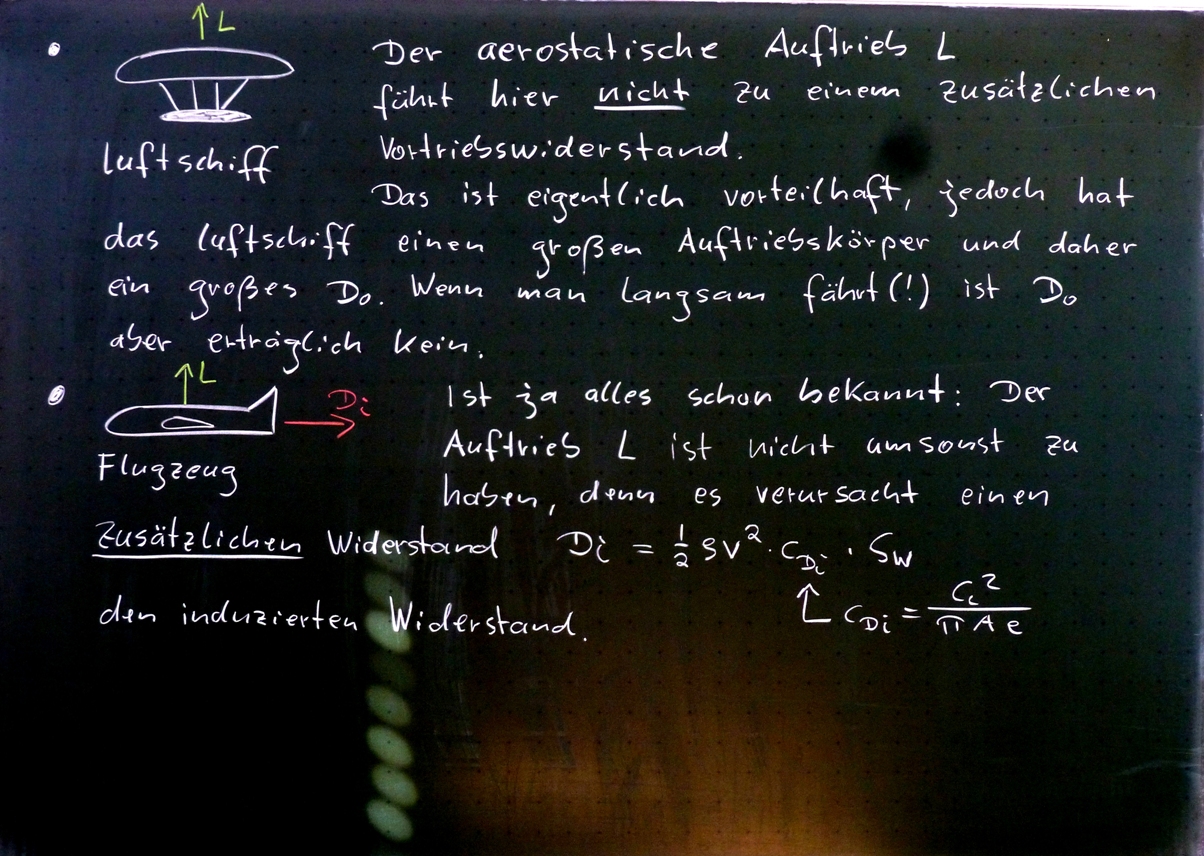 L
Der aerostatische Auftrieb L
führt hier nicht zu einem zusätzlichen
Vortriebswiderstand.
Luftschiff
Das ist eigentlich vorteilhaft, jedoch hat
das Luftschiff einen großen Auftriebskörper und daher
ein großes D₀. Wenn man langsam fährt(!) ist D₀
aber erträglich kein.
L
Di
Ist ja alles schon bekannt: Der
Auftrieb L ist nicht umsonst zu
Flugzeug
haben, denn es verursacht einen
zusätzlichen Widerstand Di = 1/2 ρv² · C_Di · S_W
den induzierten Widerstand.
C_Di = C_L² / π A e